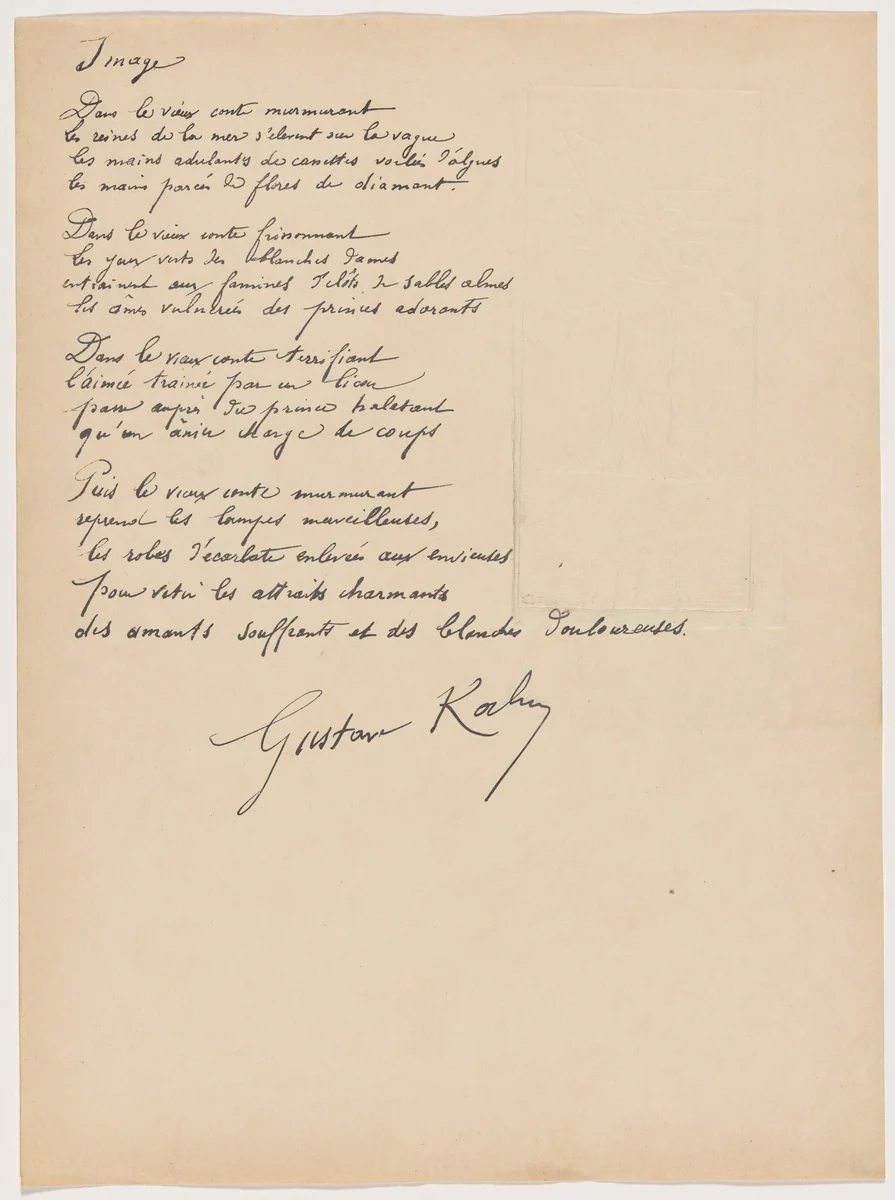 Image
Dans le vieux conte murmurant
les reines de la mer s'élèvent sur la vague
les mains adulants de voilés d'algues
les mains parées de flores de diamant.
Dans le vieux conte frissonnant
les yeux verts des blanches dames
entrainent aux famines d'ilôts de sables almes
les âmes vulnérées des princes adorants
Dans le vieux conte terrifiant
l'aimée trainée par un licou
passe auprès du prince haletant
qu'un ânier charge de coups
Puis le vieux conte murmurant
reprend les lampes merveilleuses,
les robes d'écarlate enlevées aux envieuses
pour vetir les attraits charmants
des amants souffrants et des blanches douloureuses.
Gustave Kahn